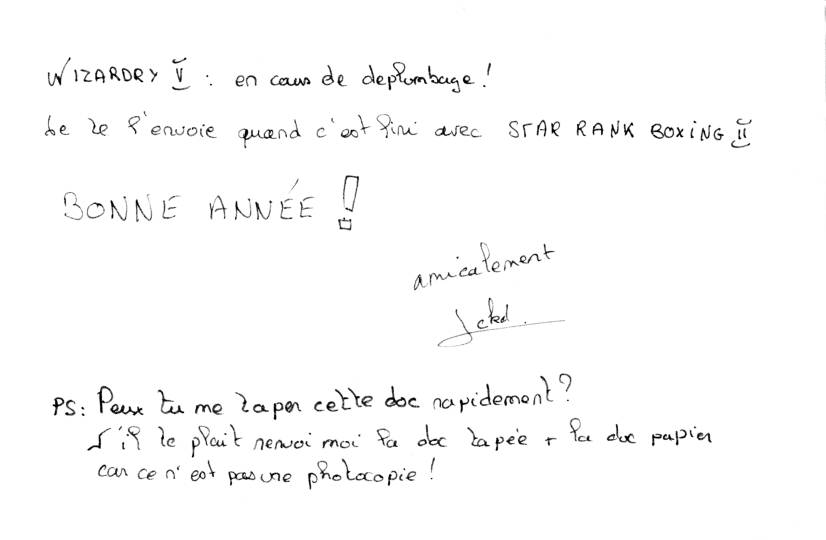 WIZARDRY V : en cours de deplombage !
Je te l'envoie quand c'est fini avec STAR RANK BOXING II
BONNE ANNÉE !
amicalement
Jckd.
PS: Peux tu me taper cette doc rapidement ?
S'il te plait renvoi moi la doc tapée + la doc papier
car ce n'est pas une photocopie !